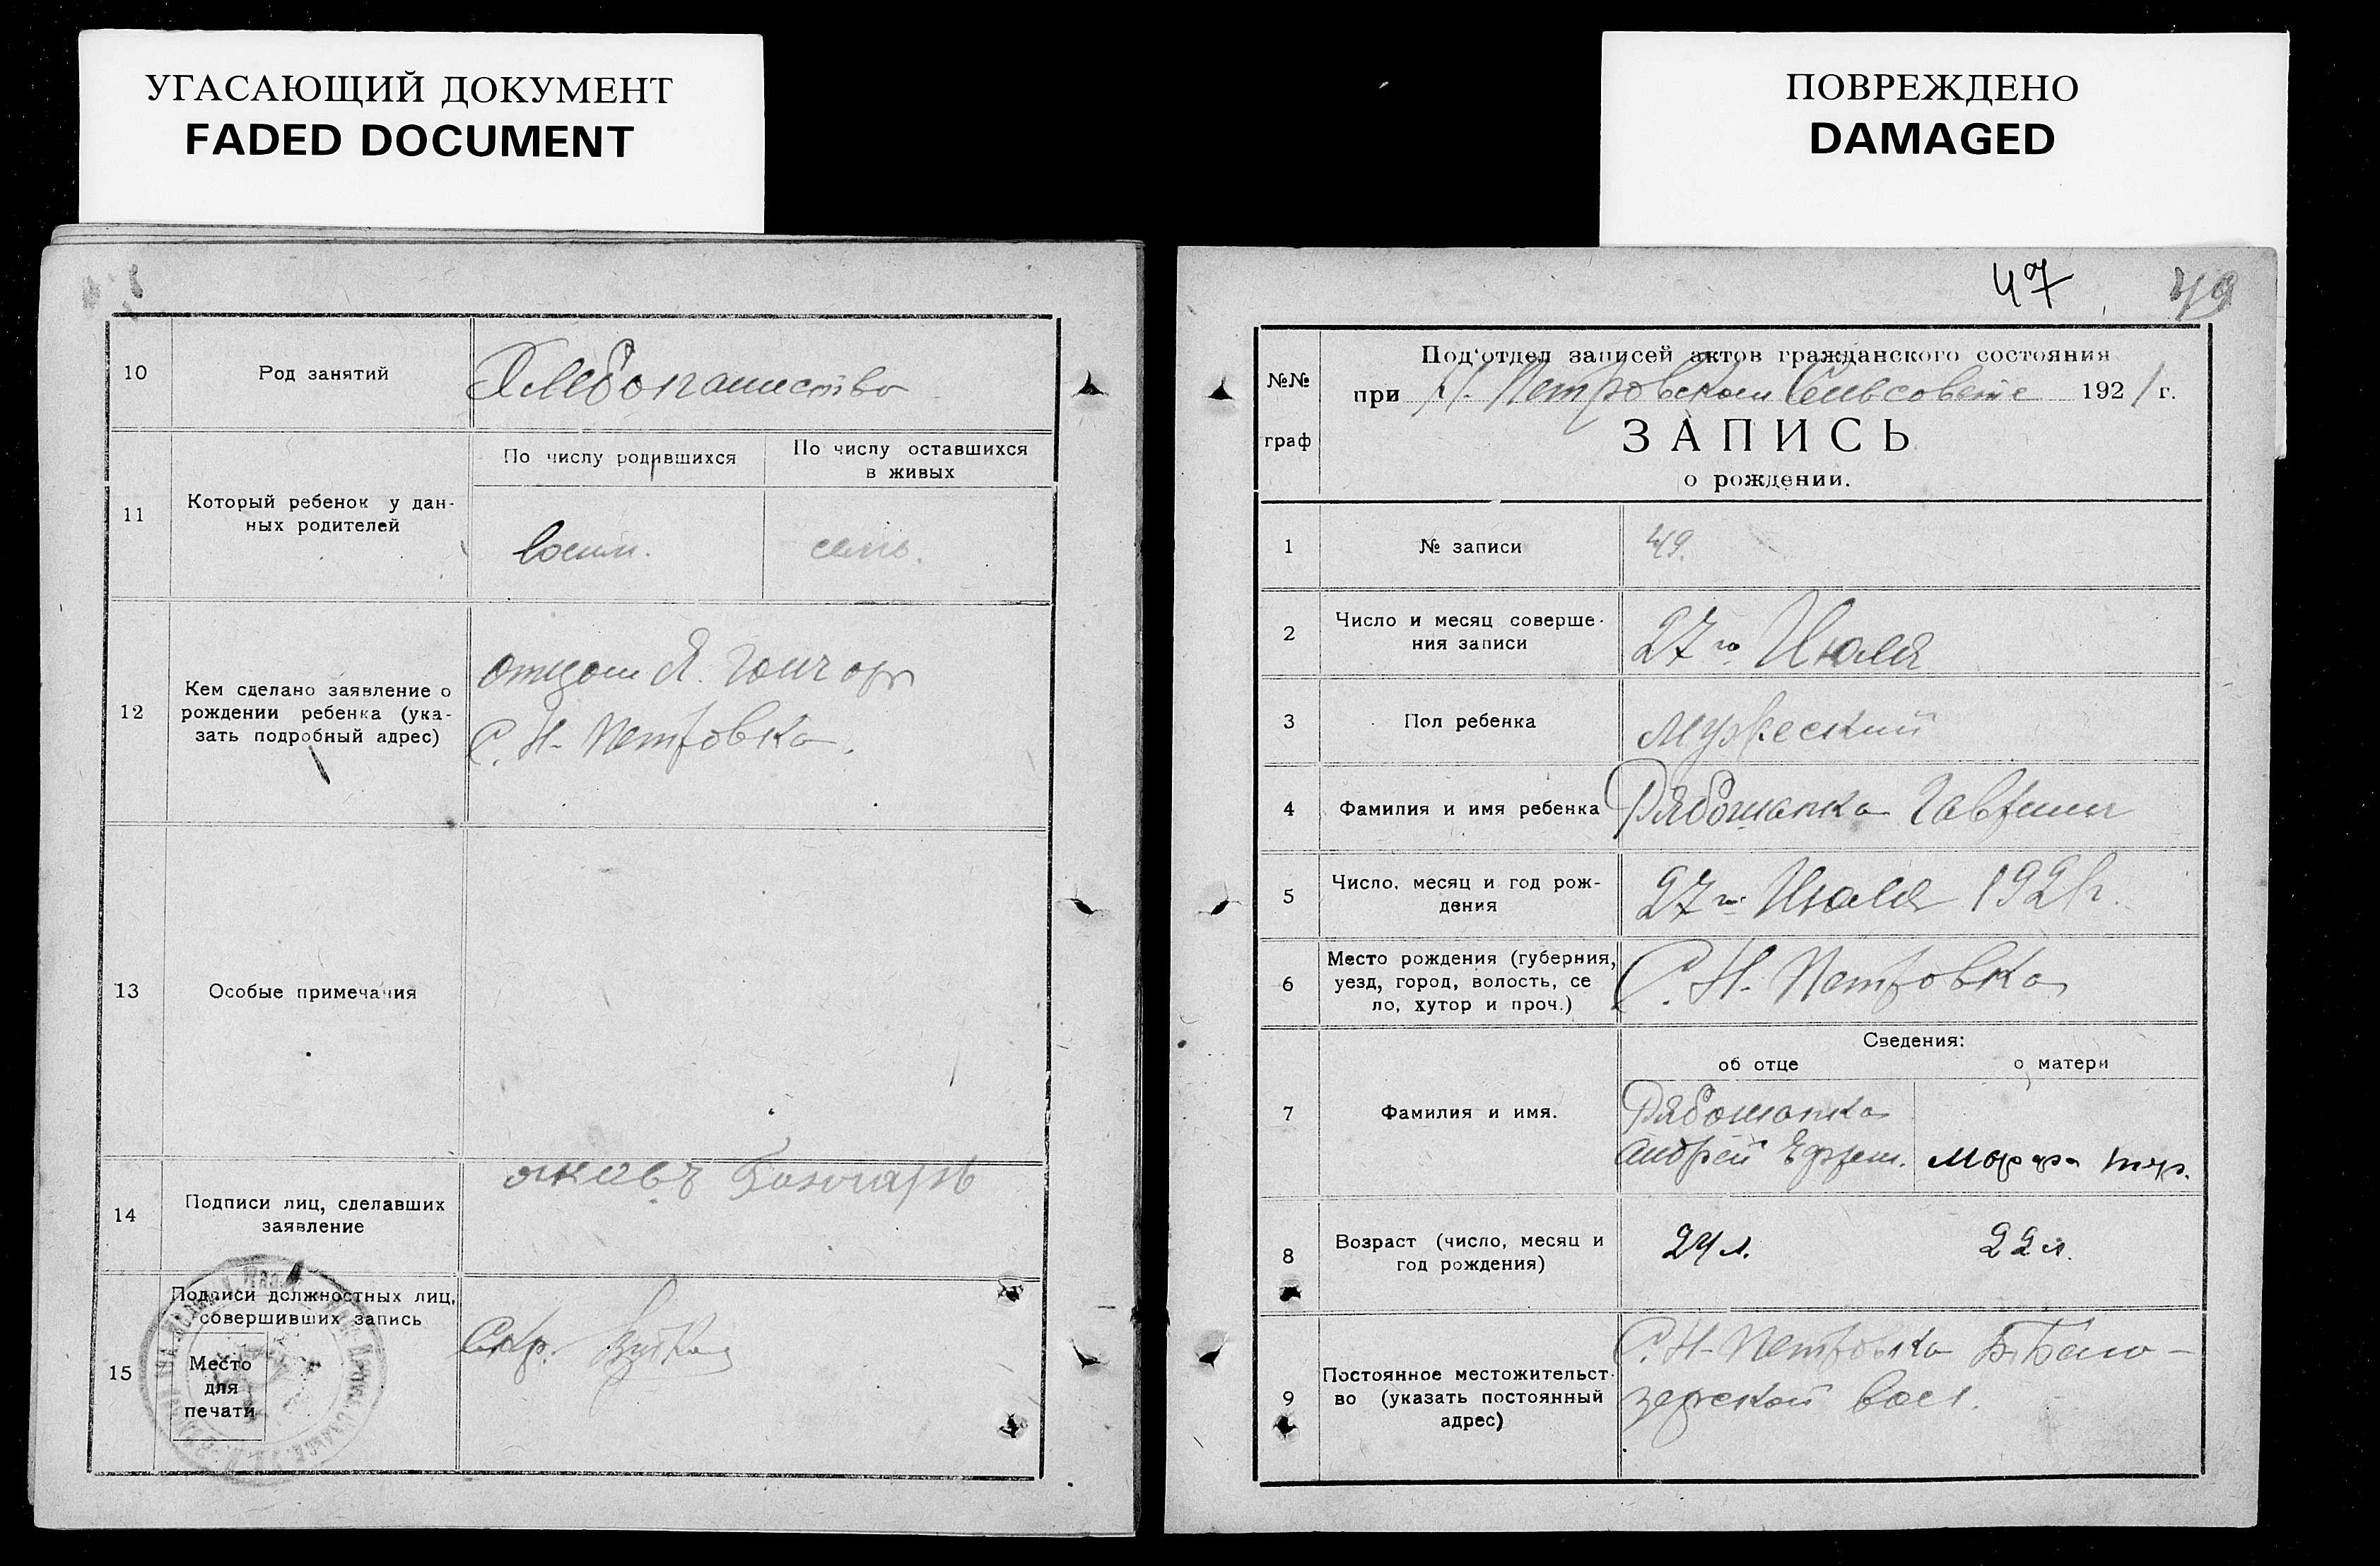 УГАСАЮЩИЙ ДОКУМЕНТ
FADED DOCUMENT
ПОВРЕЖДЕНО
DAMAGED
10
Род занятий
Хлебопашество
11
Который ребенок у дан-
ных родителей
По числу родившихся
По числу оставшихся
в живых
восьм.
семь.
12
Кем сделано заявление о
рождении ребенка (ука-
зать подробный адрес)
отцом Я. Гончар
С. Н-Петровка.
13
Особые примечания
14
Подписи лиц, сделавших
заявление
яковъ Гончаръ
15
Подписи должностных лиц,
совершивших запись
Место
для
печати
Скр.
47
49
№№
граф
Под'отдел записей актов гражданского состояния
при Н. Петровском Сельсовете 1921 г.
ЗАПИСЬ
о рождении.
1
№ записи
49.
2
Число и месяц соверше-
ния записи
27го Июля
3
Пол ребенка
Мужеский
4
Фамилия и имя ребенка
Рябошапка Гавриил
5
Число, месяц и год рож-
дения
27го Июля 1921г.
6
Место рождения (губерния,
уезд, город, волость, се
ло, хутор и проч.)
С. Н-Петровка
Сведения:
об отце
о матери
7
Фамилия и имя.
Рябошапка
Андрей Ефрем.
Марфа
8
Возраст (число, месяц и
год рождения)
24 л.
22 л.
9
Постоянное местожительст-
во (указать постоянный
адрес)
С. Н-Петровка Б. Бело-
зерской вол.